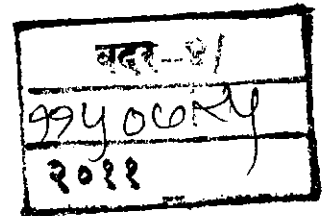 बदर-४/
११५०७२५
२०११